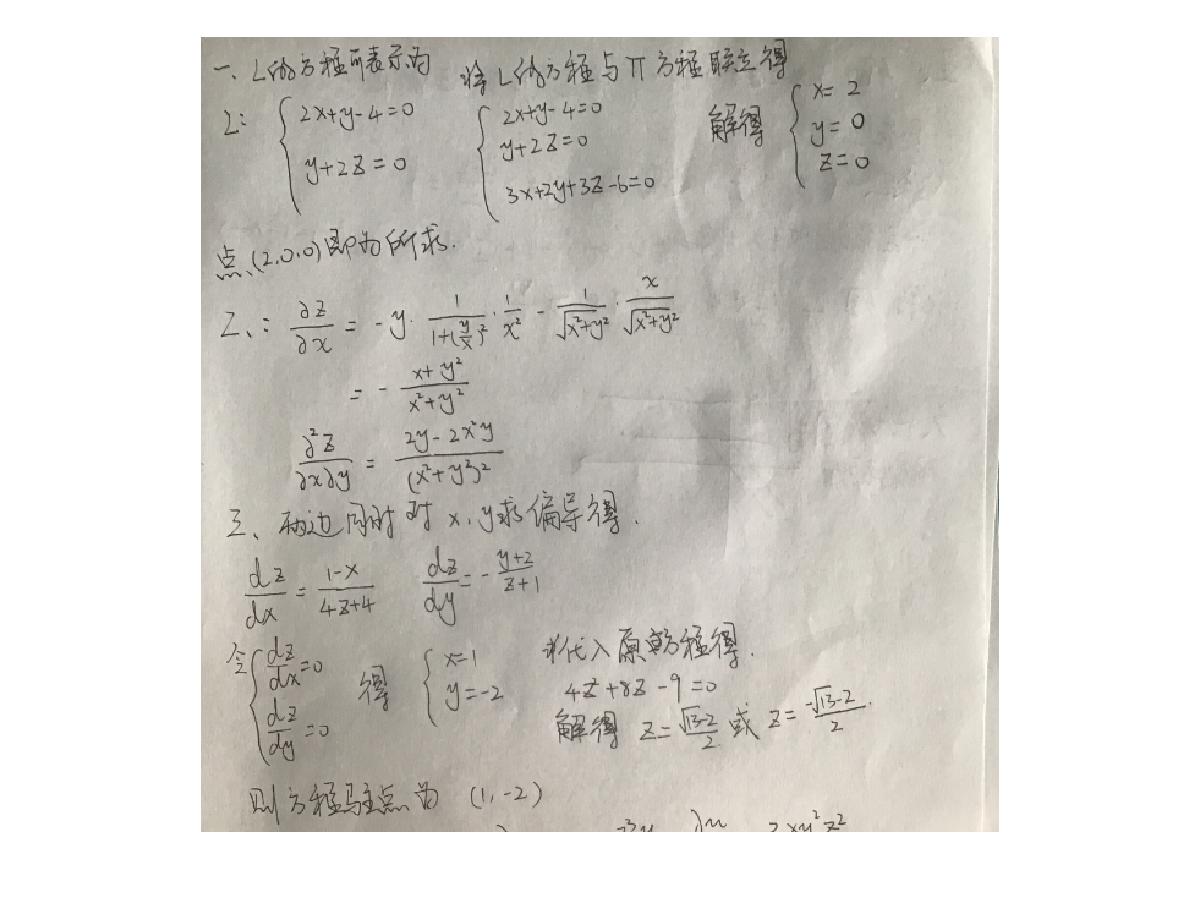 一、L的方程可表示为 将L的方程与π方程联立得
L: { 2x+y-4=0, y+2z=0 { 2x+y-4=0, y+2z=0, 3x+2y+3z-6=0 解得 { x=2, y=0, z=0
点(2,0,0)即为所求.
2、: ∂z/∂x = -y · 1/(1+(y/x)²) · 1/x² - 1/√(x²+y²) · x/√(x²+y²)
= - (x+y²)/(x²+y²)
∂²z/∂x∂y = (2y-2x²y)/(x²+y²)²
三、两边同时对x,y求偏导得.
dz/dx = (1-x)/(4z+4) dz/dy = -(y+2)/(z+1)
令 { dz/dx=0, dz/dy=0 得 { x=1, y=-2 代入原方程得.
4z²+8z-9=0
解得 z=(√13-2)/2 或 z=(-√13-2)/2.
则方程驻点为 (1,-2)